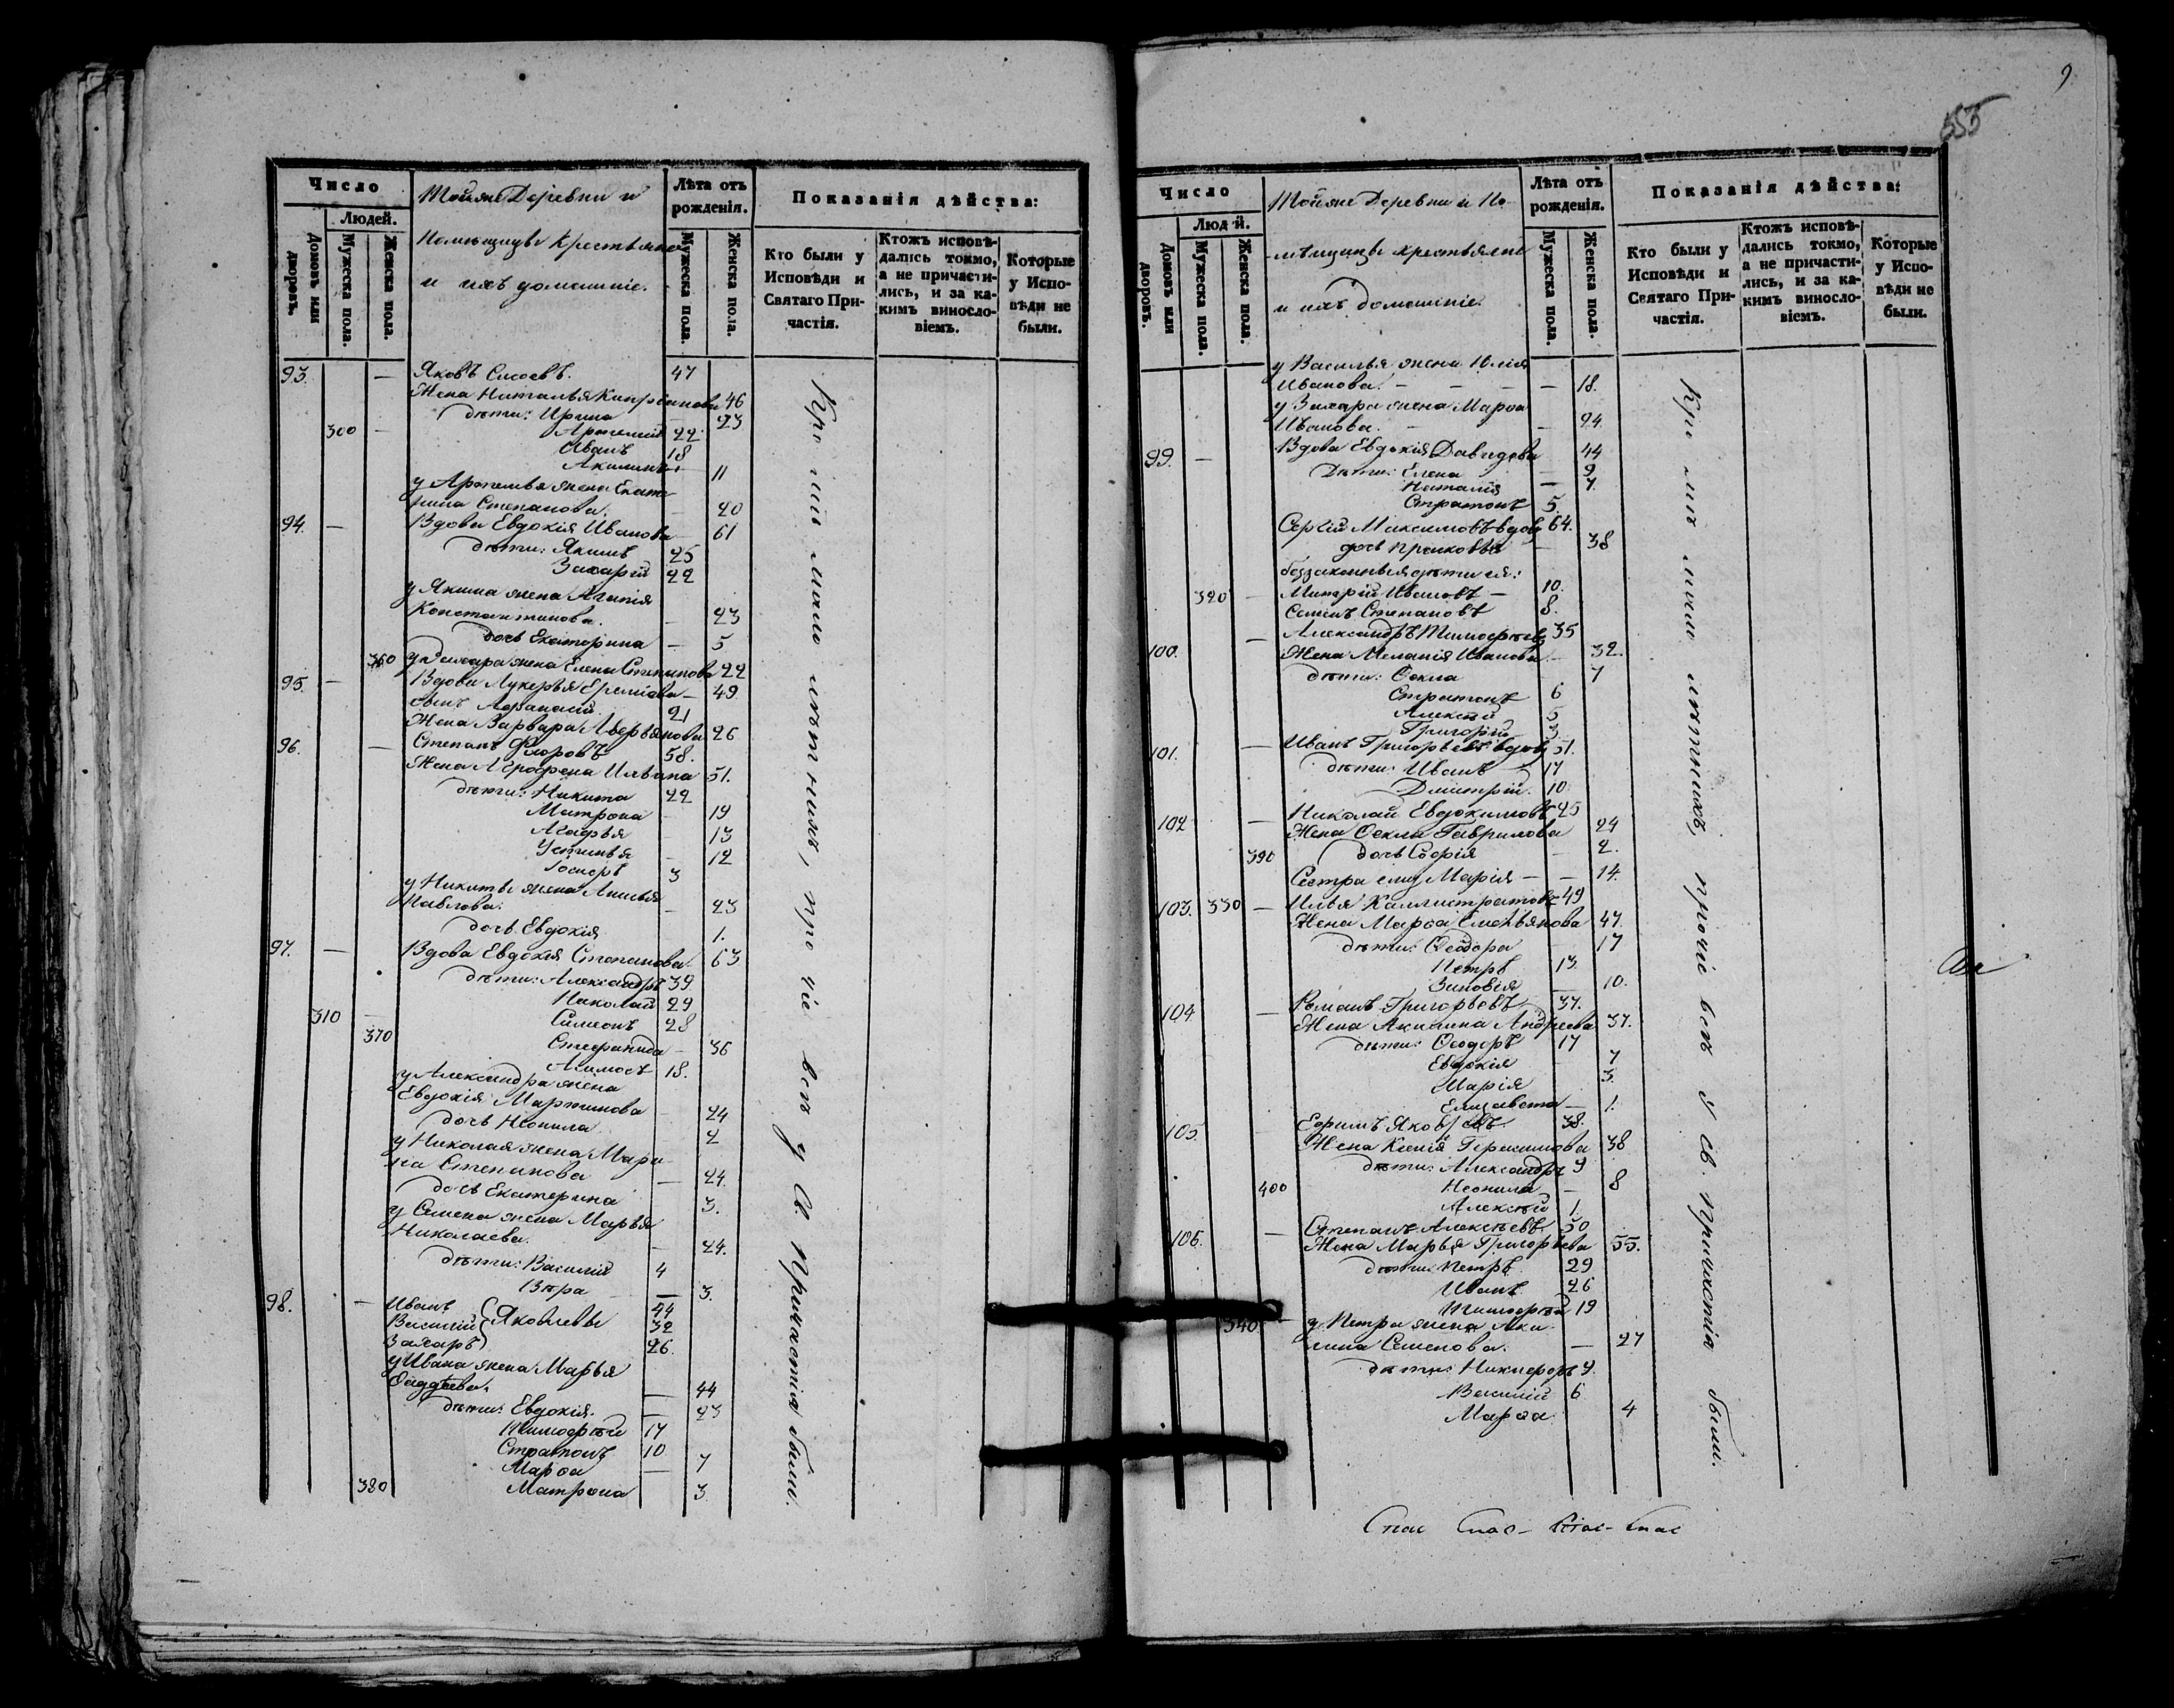 Число
Людей.
Домовъ или дворовъ.
Мужеска пола.
Женска пола.
Тойже Деревни и
Помѣщицы крестьяне
и ихъ домашніе.
Лѣта отъ рожденія.
Мужеска пола.
Женска пола.
Показанія дѣйства:
Кто были у Исповѣди и Святаго Причастія.
Ктожъ исповѣдались токмо, а не причастились, и за какимъ винословіемъ.
Которые у Исповѣди не были.
93. — Яковъ Сисоевъ. 47
Жена Наталья Кипріанова 46
дѣти: Ирина 23
300 — Артемій 22
Иванъ 18
Акилина 11
у Артемья жена Екате-
рина Степанова. — 20
94. — Вдова Евдокія Иванова 61
дѣти: Якимъ 25
Захарій 22
у Якима жена Агапія
Константинова. — 23
дочь Екатерина — 5
360 у Захара жена Елена Степанова 22
95. — Вдова Лукерья Еремѣева — 49
сынъ Афанасій 21
Жена Варвара Аверьянова 26
96. — Степанъ Флоровъ 58.
Жена Агрофена Ильина 51.
дѣти: Никита 22
Матрона — 19
Агафья — 13
Устинья — 12
Іосифъ 3
у Никиты жена Анисья
Павлова. — 23
дочь Евдокія 1.
97. — Вдова Евдокія Степанова 63
дѣти: Александръ 39
Николай 29
310 — Симеонъ 28
370 Стефанида — 36
Анимосъ 18.
у Александра жена
Евдокія Мартинова — 24
дочь Неонила 2
у Николая жена Мари-
на Степанова — 24.
дочь Екатерина 3.
у Семена жена Марья
Николаева. — 24.
дѣти: Василій 4
Вѣра — 3.
98. — Иванъ 44
Василій } Яковлевы 32
Захаръ 26.
у Ивана жена Марья
Фаддѣева. — 44
дѣти: Евдокія. — 23
Тимофѣй 17
Стратонъ 10
Марѳа — 7
380 Матрона 3
При немъ мало лѣтнихъ, прочіе всѣ у Св Причастія были.
9
555
Число
Людей.
Домовъ или дворовъ.
Мужеска пола.
Женска пола.
Тойже Деревни и По-
мѣщицы крестьяне
и ихъ домашніе.
Лѣта отъ рожденія.
Мужеска пола.
Женска пола.
Показанія дѣйства:
Кто были у Исповѣди и Святаго Причастія.
Ктожъ исповѣдались токмо, а не причастились, и за какимъ винословіемъ.
Которые у Исповѣди не были.
у Василья жена Юлія
Иванова. — — — — 18.
у Захара жена Марѳа
Иванова. — — 24.
99. — Вдова Евдокія Давидова 44
Дѣти: Елена — 9
Наталія — 7.
Стратонъ 5.
Сергій Максимовъ вдов 64.
дочь Прасковья — 38
беззаконныя дѣти ея:
320 — Митрій Ивановъ — 10.
Семенъ Степановъ 8.
100. — Александръ Тимофѣевъ 35
Жена Меланія Иванова — 32.
дѣти: Ѳекла 7
Стратонъ 6
Алексѣй 5
Григорій 3
101. — Иванъ Григорьевъ вдов 51.
дѣти: Иванъ 17
Дмитрій. 10
102 — Николай Евдокимовъ 25
Жена Ѳекла Гаврилова 24
390 дочь Софія — 2.
Сестра ему Марія — — 14.
103. 330 — Илья Каллистратовъ 49
Жена Марѳа Емельянова 47.
дѣти: Ѳедора 17
Петръ 13.
Зиновія — 10.
104 — Романъ Григорьевъ 37.
Жена Акилина Андреева 37.
дѣти: Ѳеодоръ 17
Евдокія 7
Марія 3.
Елизавета — 1.
105. — Ефимъ Яковлевъ 38.
Жена Ксенія Герасимова 38
дѣти: Александръ 9
400 Неонила — 8
Алексѣй 1.
106. — Степанъ Алексѣевъ 50
Жена Марья Григорьева 55.
дѣти: Петръ 29
Иванъ 26
Тимофѣй 19
340 — у Петра жена Аки-
лина Семенова. — 27
дѣти: Никифоръ 9.
Василій 6
Марѳа. 4
При нихъ мало лѣтнихъ, прочіе всѣ у Св Причастія были.
Спас Спас- Спас- Спас